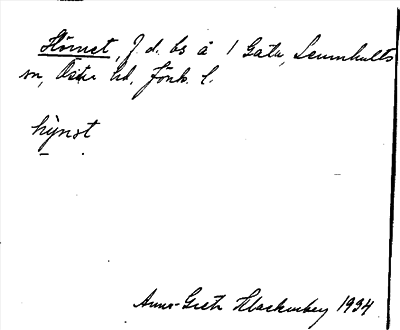 Hörnet, f. d. bs å 1 Gata, Lemnhults
sn, Östra hd, Jönk. l.
hy̳nət
Anna-Greta Hackenberg 1934